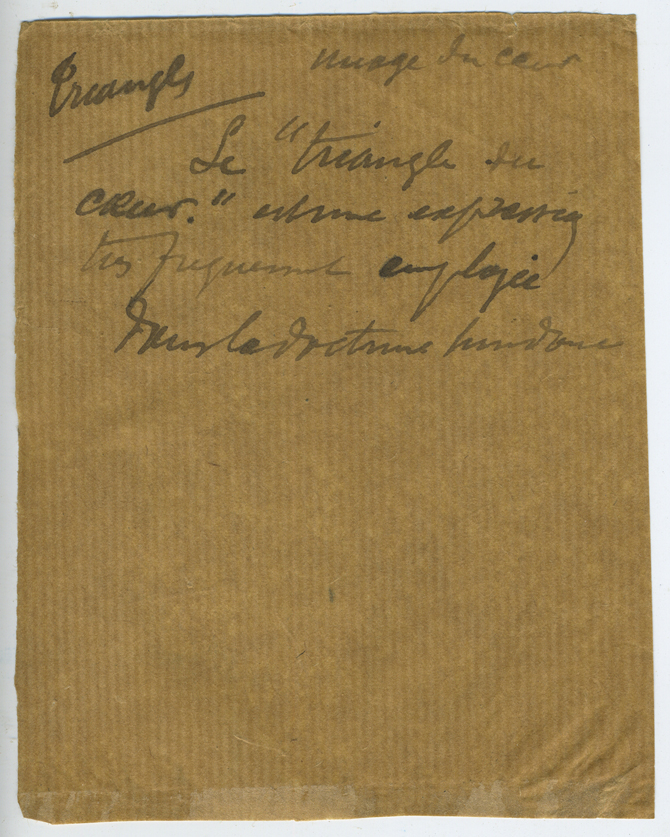 Triangle
image du cœur
Le "triangle du
cœur." est une expression
très frequemment employée
dans la doctrine hindoue